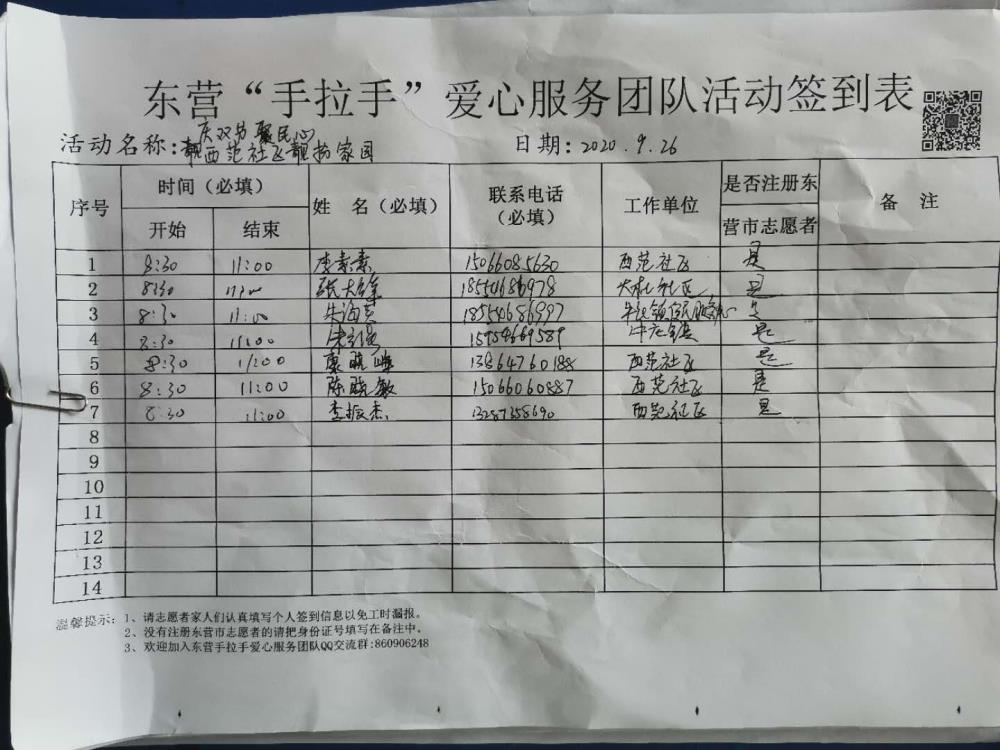 东营“手拉手”爱心服务团队活动签到表
庆双节 聚民心
活动名称: 西范社区靓扮家园 日期: 2020.9.26
序号 时间（必填） 姓 名（必填） 联系电话（必填） 工作单位 是否注册东营市志愿者 备 注
开始 结束
1 8:30 11:00 李素素 15066085630 西范社区 是
2 8:30 11:00 18554686978 社区 是
3 8:30 11:00 牛海英 18554686997 是
4 8:30 11:00 15954669589 牛庄镇 是
5 8:30 11:00 康晓峰 13864760188 西范社区 是
6 8:30 11:00 陈晓敏 15066060887 西范社区 是
7 8:30 11:00 李振杰 13287358690 西范社区 是
8
9
10
11
12
13
14
温馨提示: 1、请志愿者家人们认真填写个人签到信息以免工时漏报。
2、没有注册东营市志愿者的请把身份证号填写在备注中。
3、欢迎加入东营手拉手爱心服务团队QQ交流群:860906248